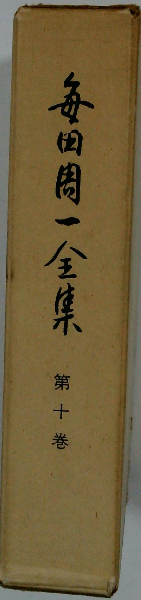 毎田周一全集
第十巻